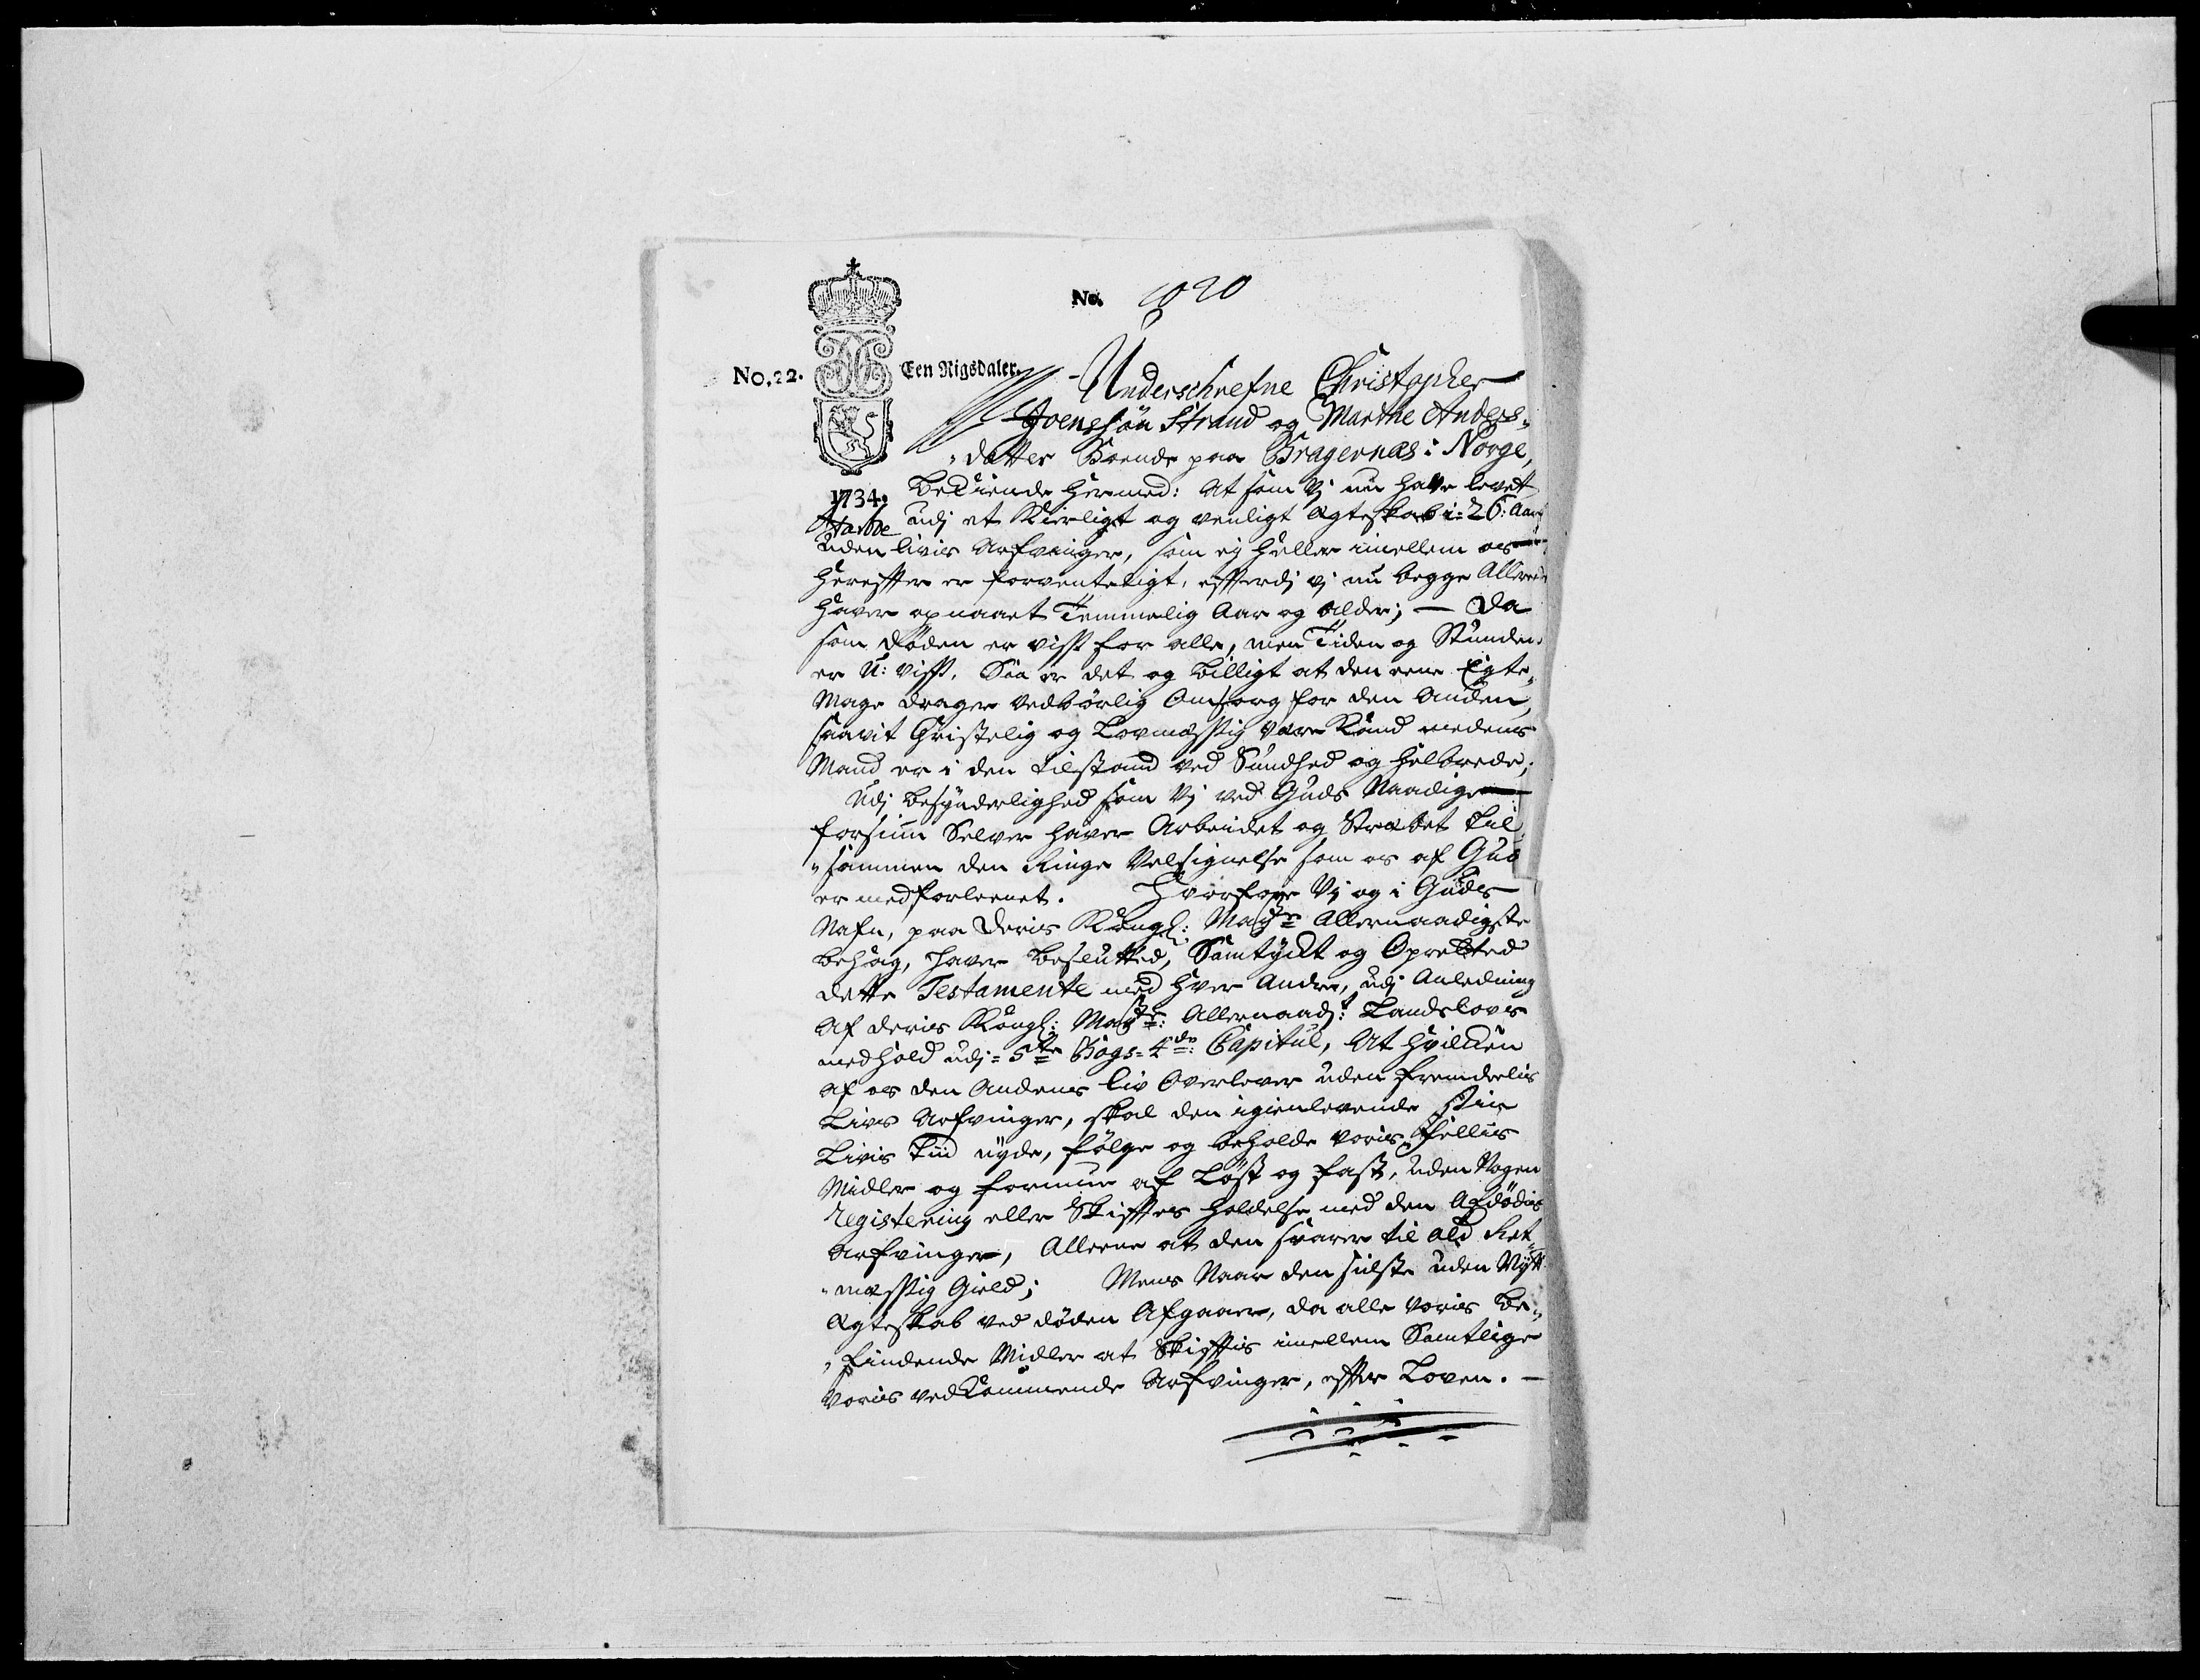 No. 1020
No. 22. Een Rigsdaler.
1734.
Underschrefne Christopher
Joenssön Strand og Marthe Anders-
datter Boende paa Bragernæs i Norge,
bekiende hermed: At som Vj nu have levet
udj et Kierligt og venligt Ægteskab i 26: Aar
uden livis Arfvinger, som ej heller imellem os
hereffter er forventeligt, effterdj vj nu begge Allerede
haver opnaaet Temmelig Aar og alder; — Da
som døden er visst for alle, men Tiden og Stunden
er U: visst, Saa er det og billigt at den eene Egte-
Mage drager vedbörlig Omsorg for den Anden,
saavit Christelig og Lovmæssig være Kand medens
Mand er i den tilstand ved Sundhed og helbrede;
Udj besynderlighed som Vj ved Guds Naadige
forsiun Selver haver Arbeidet og Stræbet til
sammen den Ringe Velsignelse som os af Gud
er medforleenet. Hvorfore Vj og i Guds
Nafn, paa Deris Kongl: Mayts Allernaadigste
behag, haver beslutted, Samtyckt og Opretted
dette Testamente med hver Andre, udj Anledning
Af deris Kongl: Mayts: Allernaadt: Landslovs
medhold udj 5te Bogs 4de: Capitul, At hvilcken
af os den Andens liv Overlever uden fremdeelis
Livs Arfvinger, skal den igienlevende Sin
Livis tiid nyde, følge og beholde voris Fellis
Midler og formue af Löst og fast, uden Nogen
Registering eller Skifftes holdelse med den Afdødis
Arfvinger, Alleene at den svarer til ald Ret-
mæssig Gield; Mens Naar den sidste uden Nytt
Ægteskab ved døden Afgaaer, da alle voris be-
findende Midler at Skifftis imellem Samtlige
voris vedkommende Arfvinger, effter Loven. —